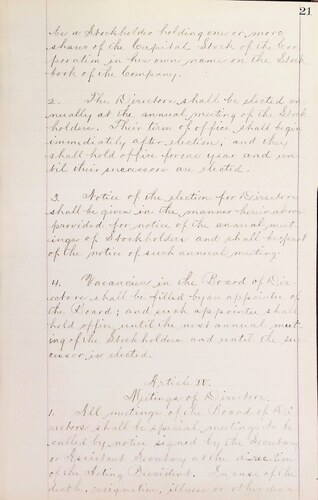 21
be a Stockholder holding one or more
shares of the Capital Stock of the Cor
poration in his own name on the Stock
book of the Company.
2. The Directors shall be elected an
nually at the annual meeting of the Stock
holders. Their term of office shall begin
immediately after election, and they
shall hold office for one year and un
til their successors are elected.
3. Notice of the election for Directors
shall be given in the manner hereinabove
provided for notice of the annual meet
ings of Stockholders and shall be part
of the notice of such annual meeting.
4. Vacancies in the Board of Dir
ectors shall be filled by an appointee of
the Board; and such appointee shall
hold office until the next annual meet
ing of the Stockholders and until the suc
cessor is elected.
Article IV.
Meetings of Directors.
1. All meetings of the Board of Di
rectors shall be special meetings to be
called by notice signed by the Secretary
or Assistant Secretary at the direction
of the Acting President. In case of the
death, resignation, illness or other